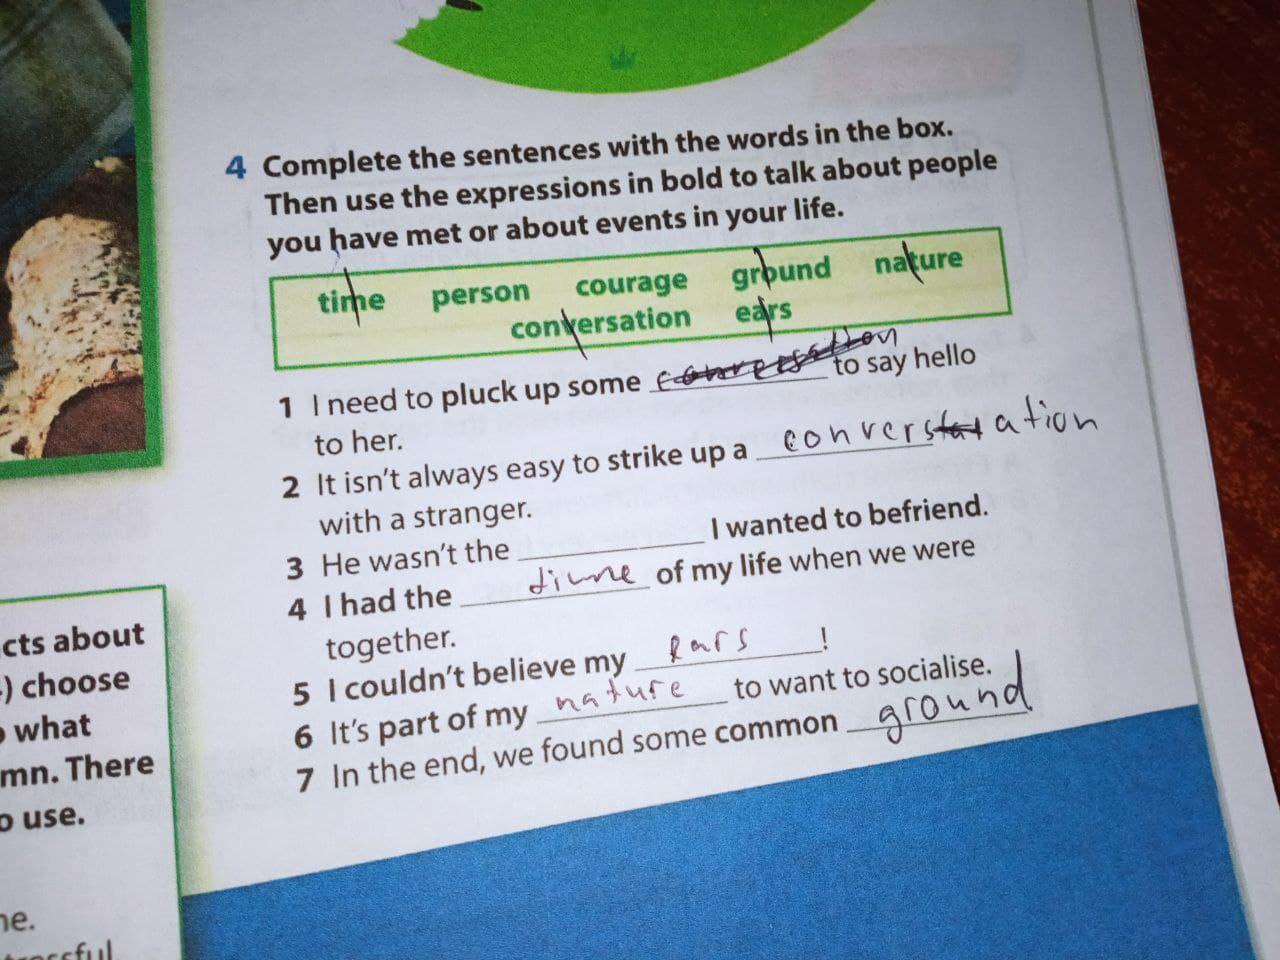 4 Complete the sentences with the words in the box.
Then use the expressions in bold to talk about people
you have met or about events in your life.
time person courage ground nature
conversation ears
1 I need to pluck up some to say hello
to her.
2 It isn't always easy to strike up a conversation
with a stranger.
3 He wasn't the I wanted to befriend.
4 I had the time of my life when we were
together.
5 I couldn't believe my ears !
6 It's part of my nature to want to socialise.
7 In the end, we found some common ground
cts about
) choose
what
mn. There
o use.
ne.